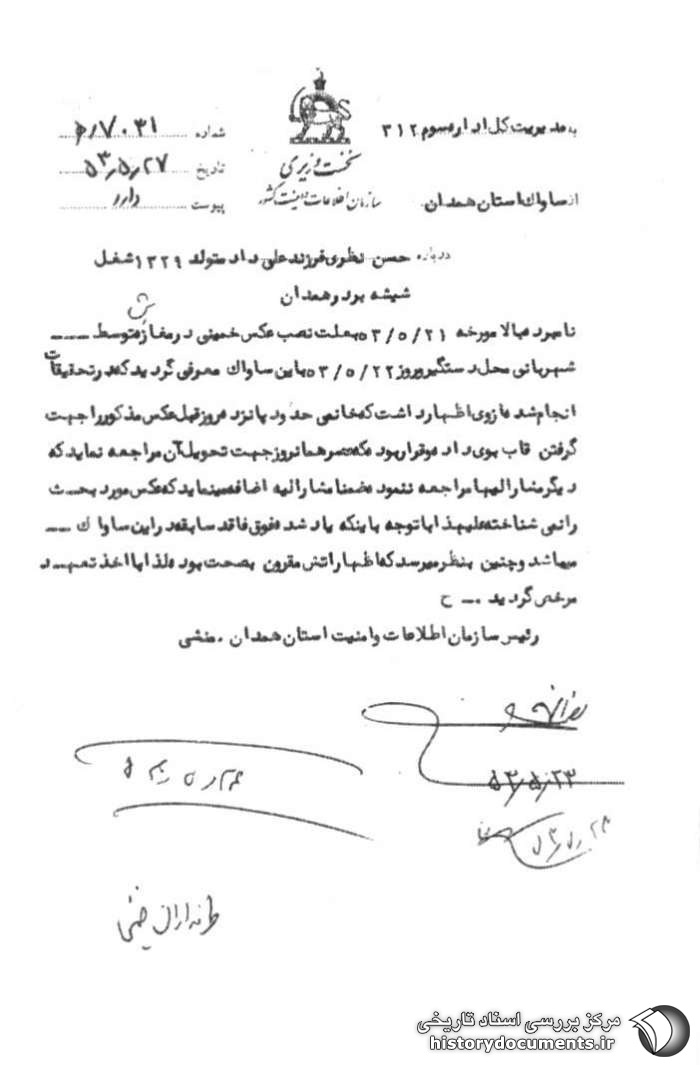 به مدیریت کل اداره سوم ۳۱۲
شماره ۷۰۳۱/ه
نخست وزیری
تاریخ ۵۳/۵/۲۷
سازمان اطلاعات و امنیت کشور
از ساواک استان همدان
پیوست دارد
درباره حسن نظری فرزند علی داد متولد ۱۳۲۹ شغل
شیشه بر در همدان
نامبرده بالا مورخه ۵۳/۵/۲۱ بعلت نصب عکس خمینی در مغازه‌اش توسط ــــ
شهربانی محل دستگیر و روز ۵۳/۵/۲۲ باین ساواک معرفی گردید که در تحقیقات
انجام شده از وی اظهار داشت که خانمی حدود پانزده روز قبل عکس مذکور را جهت
گرفتن قاب بوی داده و قرار بوده که عصر همانروز جهت تحویل آن مراجعه نماید که
دیگر مشارالیها مراجعه ننموده ضمنا مشارالیه اضافه مینماید که عکس مورد بحث
را نمی شناخته علیهذا با توجه باینکه یاد شده فوق فاقد سابقه در این ساواک ــــ
میباشد و چنین بنظر میرسد که اظهاراتش مقرون بصحت بوده لذا با اخذ تعهد
مرخص گردید . ــ ح
رئیس سازمان اطلاعات و امنیت استان همدان . منشی
۵۳/۵/۲۳
طرفداران خمینی
مرکز بررسی اسناد تاریخی
historydocuments.ir